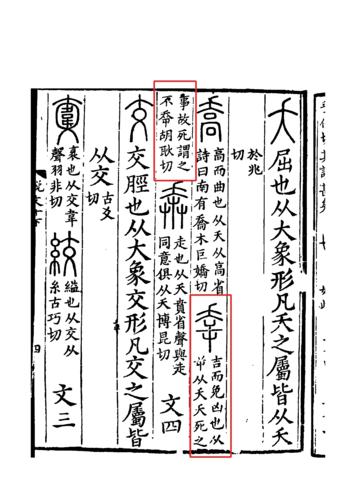 夭 屈也从大象形凡夭之屬皆从夭
於兆
切
喬 高而曲也从夭从高省
詩曰南有喬木巨嬌切
㚔 吉而免凶也从
屰从夭夭死之
事故死謂之
不㚔胡耿切
奔 走也从夭賁省聲與走
同意俱从夭博昆切
文四
交 交脛也从大象交形凡交之屬皆
从交 古爻
切
衺也从交韋
聲羽非切
絞 縊也从交从
糸古巧切
文三
說文十下
四